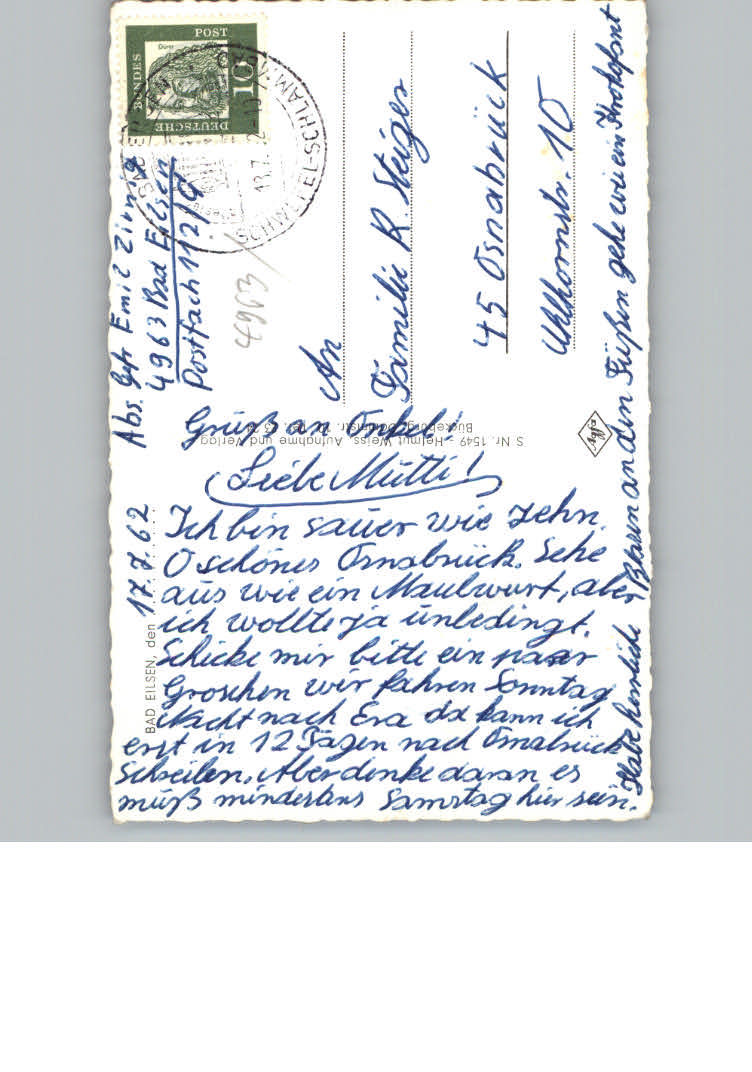 DEUTSCHE
BUNDES
POST
10
Dürer
SCHWEFEL-SCHLAMMBAD
13.7.
Abs. Gefr Emil
4963 Bad Eilsen
Postfach 112/G
4963
BAD EILSEN, den 17.7.62
Gruß an Onkel!
Liebe Mutti!
Ich bin sauer wie zehn.
O schönes Osnabrück. Sehe
aus wie ein Maulwurf, aber
ich wollte ja unbedingt.
Schicke mir bitte ein paar
Groschen wir fahren Sonntag
Nacht nach da kann ich
erst in 12 Tagen nach Osnabrück
Schreiben. Aber denke daran es
muß mindestens Samstag hier sein.
Habe herrliche Blasen an den Füßen gehe wie ein
S Nr. 1549 Helmut Weiss, Aufnahme und Verlag
Bückeburg,
Agfa
An
Familie R. Steiger
45 Osnabrück
Uhlhornstr. 10